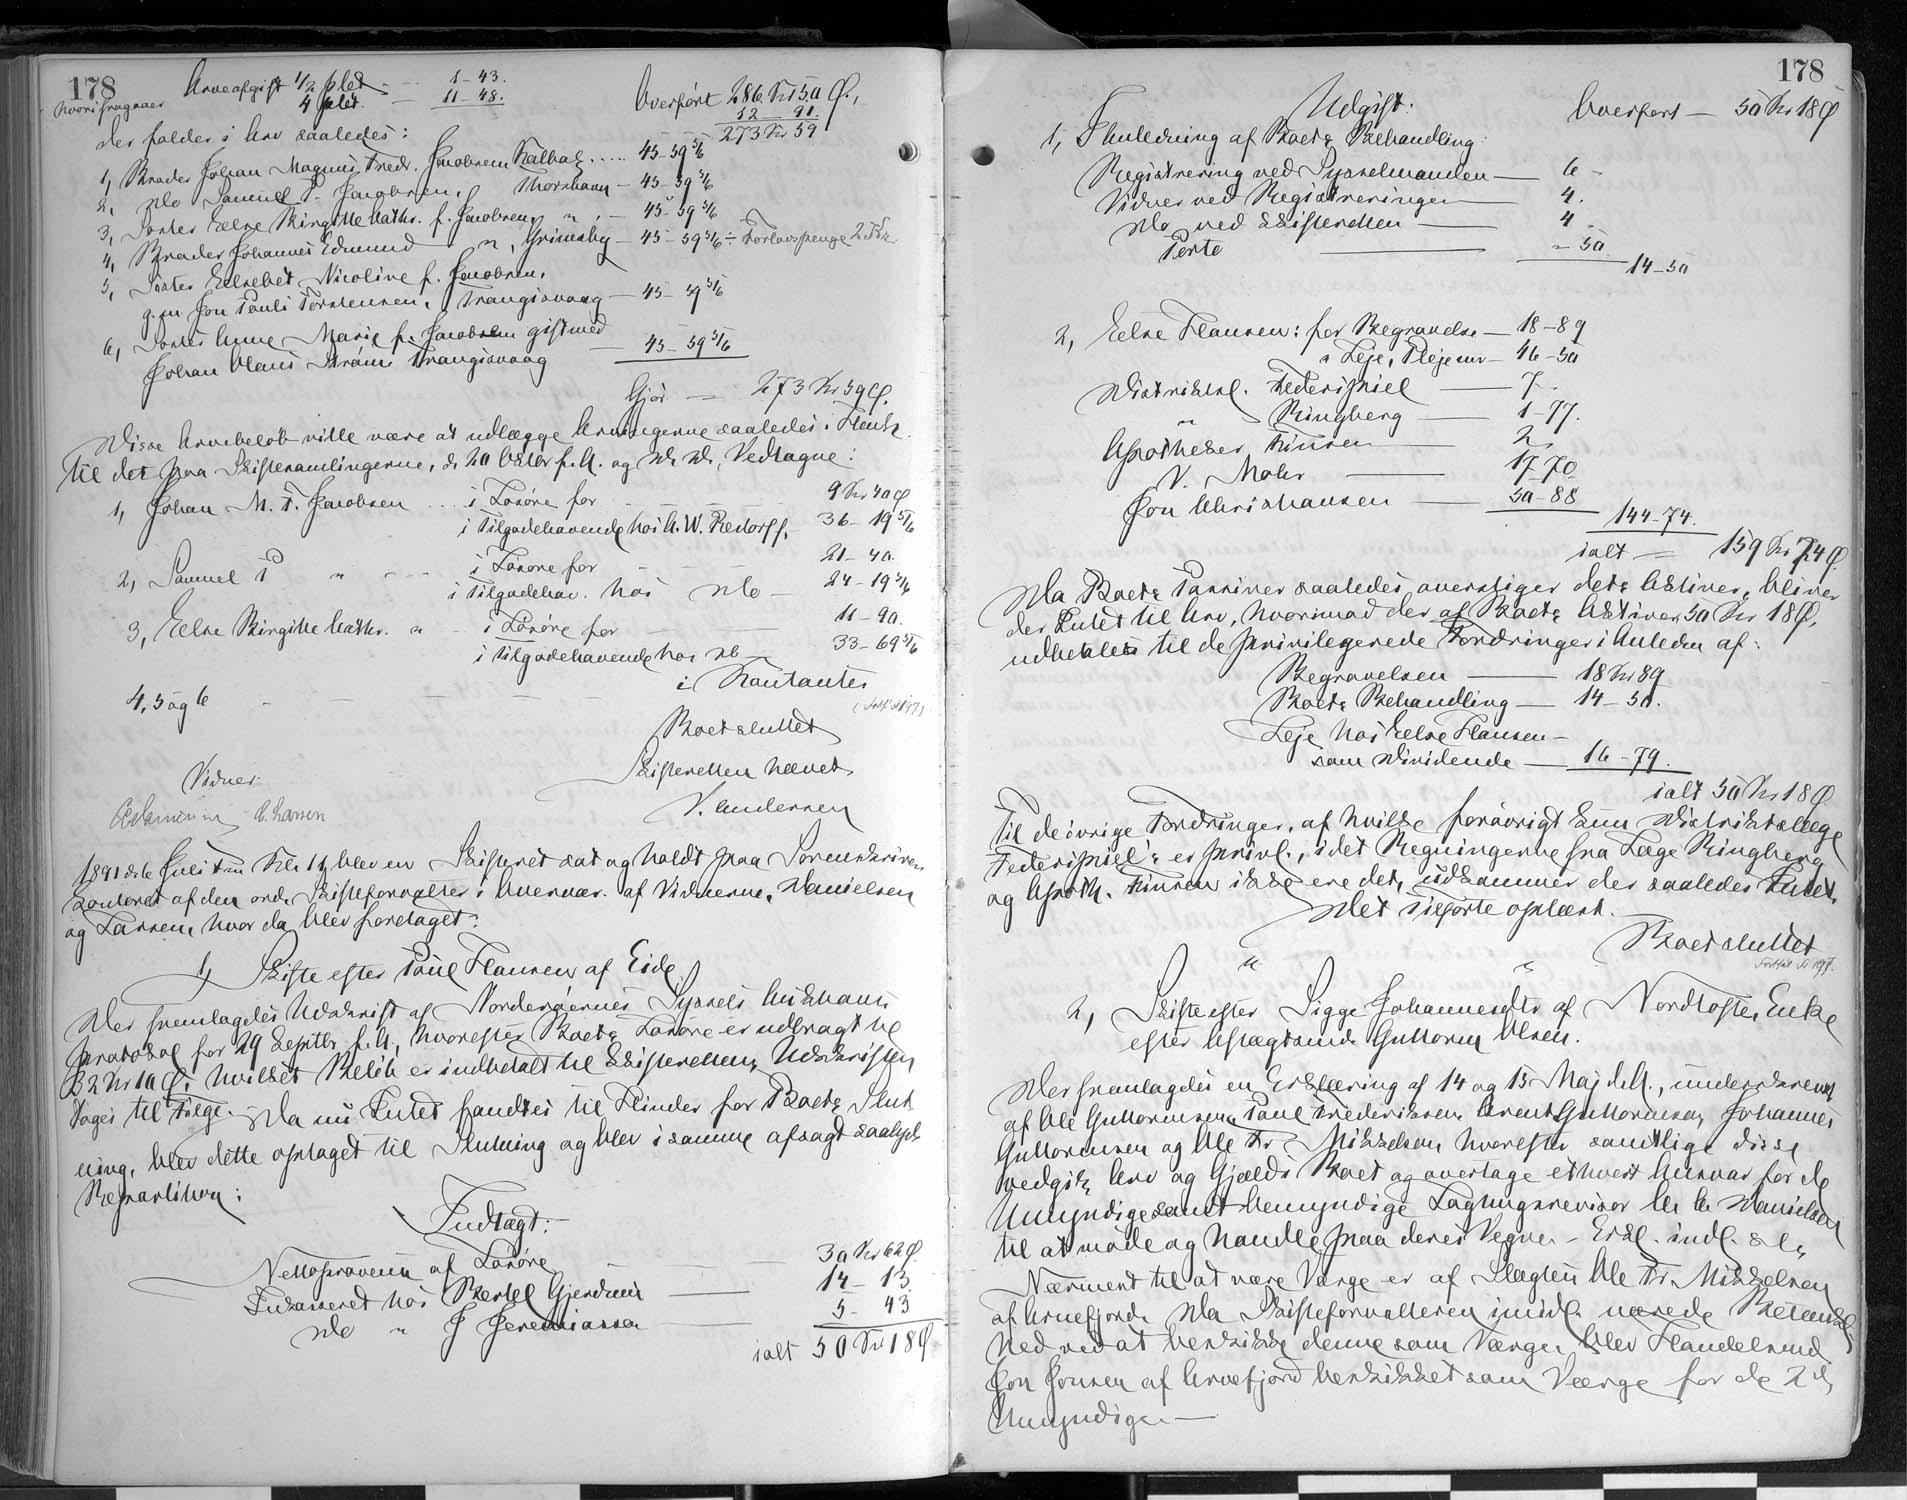 178
Arveafgift 1/2 pCt — 1-43.
hvorifragaaer 4 pCt. — 11-48.
Overført 286 Kr 50 Ø.,
12 — 91.
273 Kr 59
der falder i Arv saaledes:
1, Broder Johan Magnus Fredr. Jacobsen Kalbak ..... 45-59 5/6
2, Do Samuel P. Jacobsen, Thorshavn — 45-59 5/6
3, Søster Else Birgitte Cathr. f. Jacobsen, " — 45-59 5/6
4, Broder Johannes Edmund " , Grimsby — 45-59 5/6 ÷ Forlovspenge 2
5, Søster Elsebet Nicoline f. Jacobsen,
g. m Jon Pauli Torstensen, Trangisvaag — 45-59 5/6
6, Søster Anne Marie f. Jacobsen gift med
Johan Claus Strøm Trangisvaag 45-59 5/6
Gjør — 273 Kr 59 Ø.
Disse Arvebeløb ville være at udlægge Arvingerne saaledes i Henh.
til det paa Skiftesamlingerne, d. 20 Oktbr f. A. og D. D. Vedtagne:
1, Johan M. F. Jacobsen ... i Løsøre for 9 Kr 40 Ø
i Tilgodehavende hos A. W. Restorff, 36-19 5/6
2, Samuel P " i Løsøre for 21-40.
i Tilgodehav. hos Do — 24-19 5/6
3, Else Birgitte Cathr. " i Løsøre for 11-90.
i Tilgodehavende hos Do 33-69 5/6
4, 5 og 6 i Kontanter
Boet sluttet
Skifteretten hævet
V. Andersen
Vidner
C. Larsen
1891 d. 6 Juli Fm Kl. 11 blev en Skifteret sat og holdt paa Sorenskriver
Kontoret af den ord. Skifteforvalter i Overvær. af Vidnerne, Danielsen
og Larsen, hvor da blev foretaget:
1, Skifte efter Poul Hansen af Eide
Der fremlagdes Udskrift af Norderøernes Syssels Auktions
protokol for 29 Septbr f. A., hvorefter Boets Løsøre er udbragt til
32 Kr 10 Ø, hvilket Beløb er indbetalt til Skifteretten, Udskriften
tages til Følge. — Da nu Intet fandtes til Hinder for Boets Slut
ning, blev dette optaget til Slutning og blev i samme afsagt saalyd.
Repartition:
Indtægt:
Nettoprovenu af Løsøre 30 Kr 62 Ø
Inkasseret hos Bertel Gjerdum — 14-13
Do " J Jeremiassen — 5-43
ialt 50 Kr 18 Ø
178
Udgift:
Overført — 50 Kr 18 Ø
1, I Anledning af Boets Behandling:
Registrering ved Sysselmanden — 6 -
Vidner ved Registreringen — 4.
Do ved Skifteretten — 4
Porto — " 50
14-50
2, Else Hansen: for Begravelse — 18-89
" Leje, Pleje mv — 46-50
Distriktsl. Federspiel — 7.
" Ringberg — 1-77.
Apotheker Finsen — 2
V. Mohr — 17 70
Jon Christiansen — 50-88
144-74.
ialt — 159 Kr 24 Ø
Da Boets Passiver saaledes overstiger dets Aktiver, bliver
der Intet til Arv, hvorimod der af Boets Aktiver 50 Kr 18 Ø,
udbetales til de privilegerede Fordringer i Anledn af:
Begravelsen — 18 Kr 89
Boets Behandling — 14-50.
Leje hos Else Hansen —
som Dividende — 16-79.
ialt 50 Kr 18 Ø
Til de øvrige Fordringer, af hvilke forøvrigt kun Distriktslæge
Federspiel's er privl., idet Regningerne fra Læge Ringberg
og Apoth. Finsen ikke ere det, udkommer der saaledes Intet.
Det Tilførte oplæst.
Boet sluttet
" "
2, Skifte efter Sigge Johannesdtr af Nordtofte, Enke
efter Aftægtsmd. Guttorm Olsen.
Der fremlagdes en Erklæring af 14 og 15 Maj d. A., underskrevet
af Ole Guttormsen, Poul Frederiksen, Arent Guttormsen, Johannes
Guttormsen og Ole Fr. Mikkelsen, hvorefter samtlige disse
vedgik Arv og Gjæld i Boet og overtage ethvert Ansvar for de
Umyndige samt bemyndige Lagtingsrevisor Danielsen
til at møde og handle paa deres Vegne. — Erkl. indl. s. l.
Nærmest til at være Værge er af Slægten Ole Fr. Mikkelsen
af Arnefjord. Da Skifteforvalteren imidl. nærede Betænke
ved at beskikke denne som Værge, blev Handelsmd
Jon Jonsen af Arnefjord beskikket som Værge for de 2de
Umyndige. —